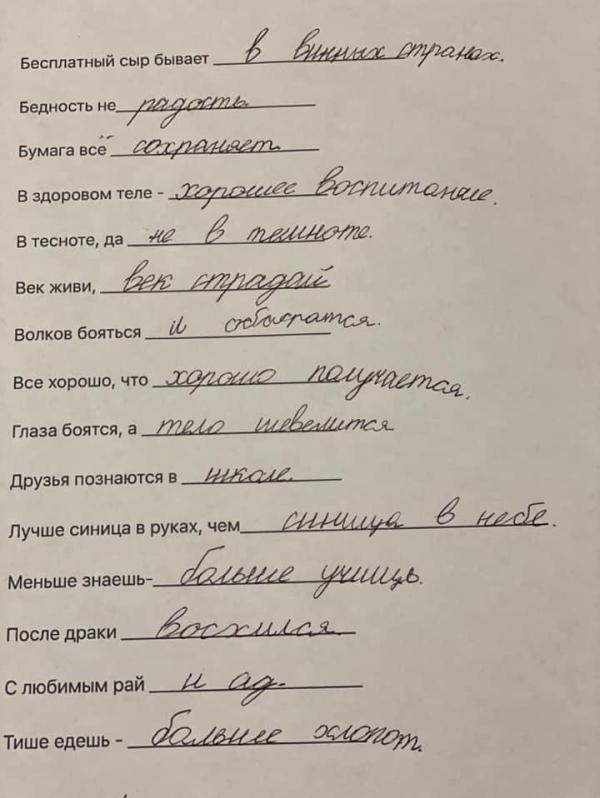 Бесплатный сыр бывает в винных странах.
Бедность не радость
Бумага всё сохраняет.
В здоровом теле - хорошее воспитание.
В тесноте, да не в темноте.
Век живи, век страдай
Волков бояться и
Все хорошо, что хорошо получается.
Глаза боятся, а тело шевелится
Друзья познаются в школе.
Лучше синица в руках, чем синица в небе.
Меньше знаешь- больше учишь.
После драки восхился
С любимым рай и ад.
Тише едешь - больше хлопот.